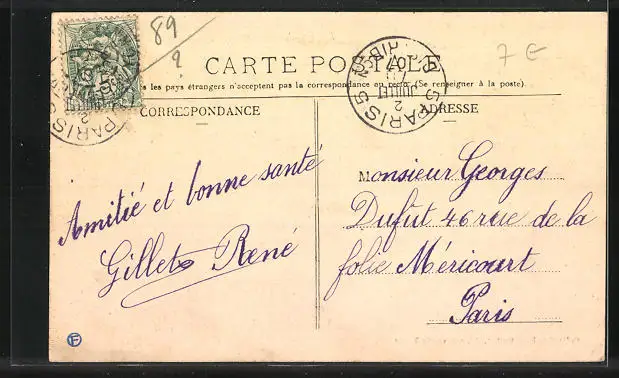 89
2
7 €
CARTE POSTALE
les pays étrangers n'acceptent pas la correspondance au recto (Se renseigner à la poste).
CORRESPONDANCE
ADRESSE
Amitié et bonne santé
Gillet René
Monsieur Georges
Dufut 46 rue de la
folie Méricourt
Paris
PARIS
PARIS
F